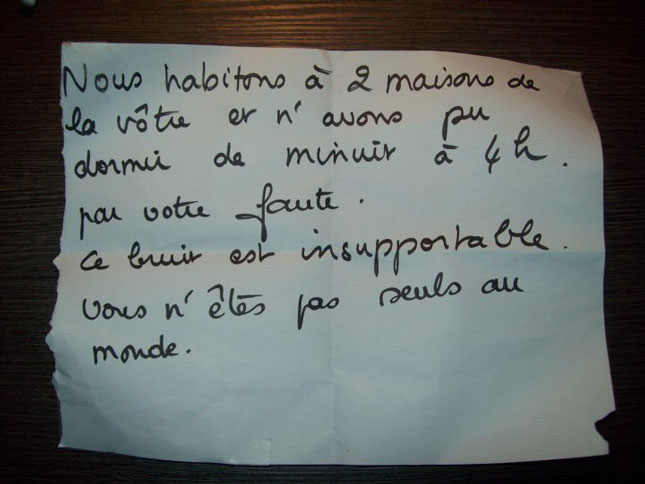 Nous habitons à 2 maisons de
la vôtre et n'avons pu
dormir de minuit à 4h.
par votre faute.
ce bruit est insupportable.
vous n'êtes pas seuls au
monde.